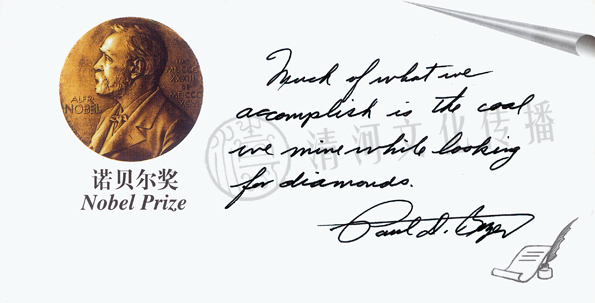 ALFR.
NOBEL
诺贝尔奖
Nobel Prize
Much of what we
accomplish is the coal
we mine while looking
for diamonds.
Paul D. Boyer
清河文化传播